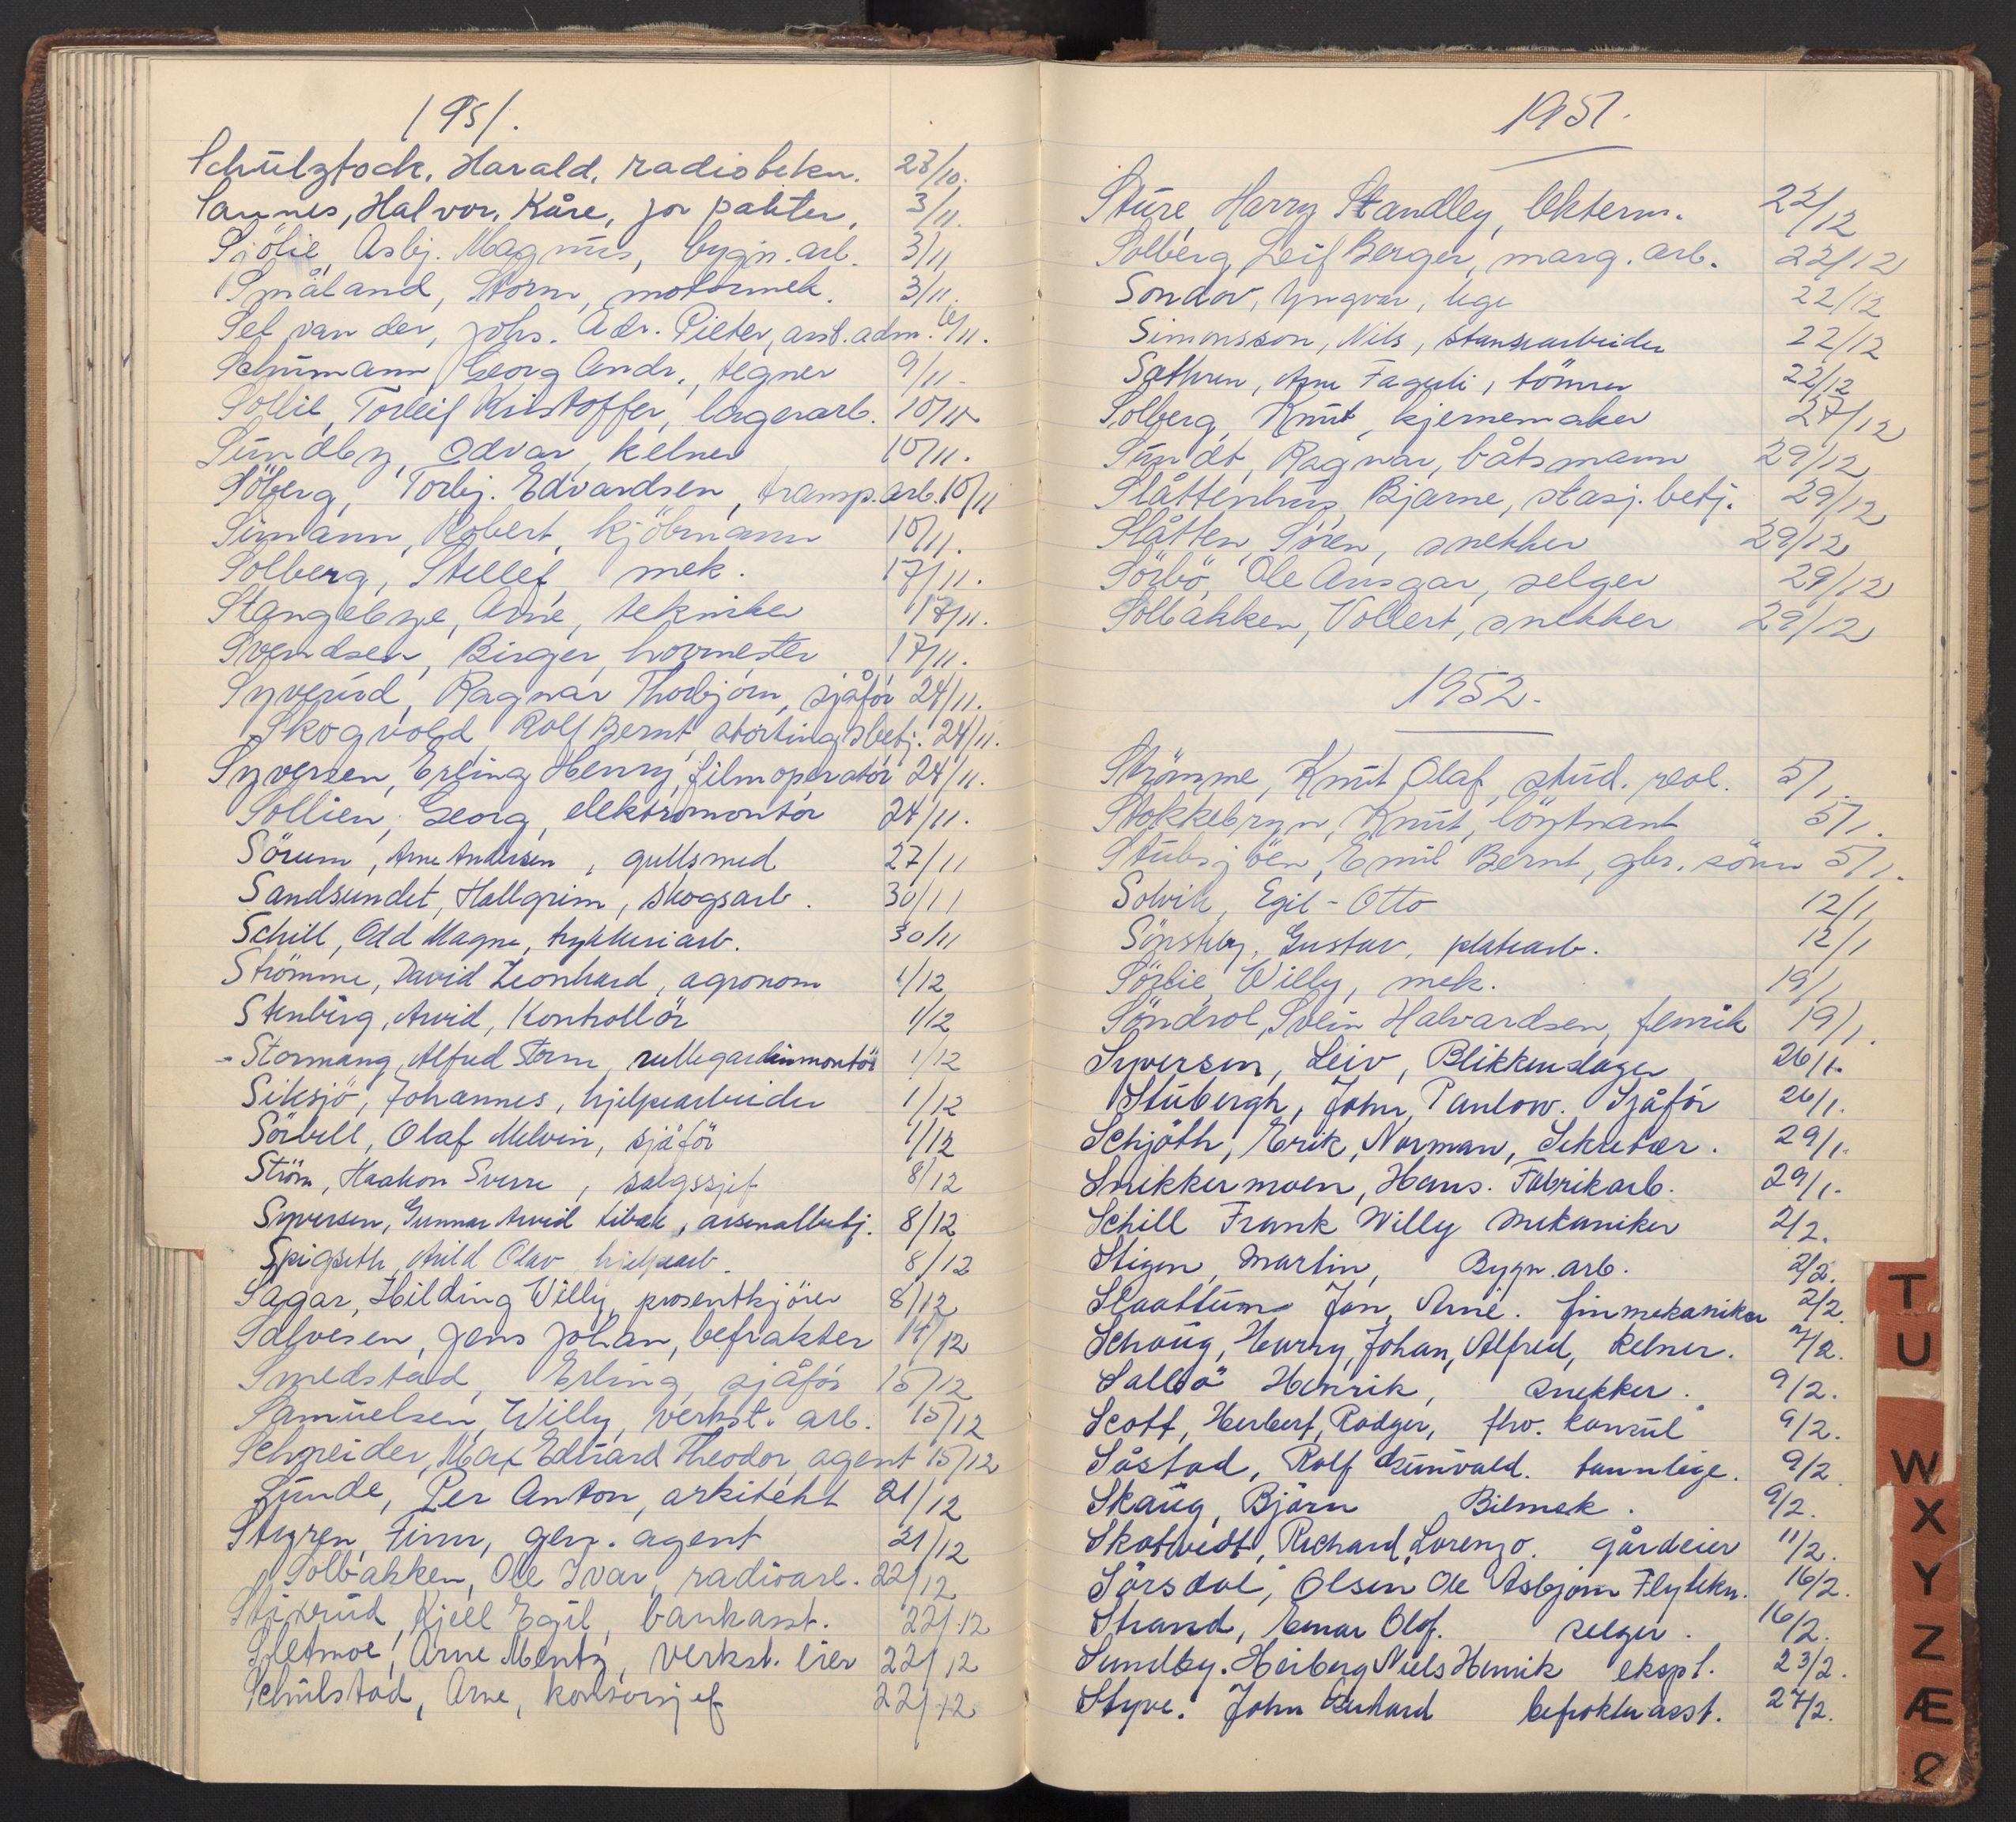 1951.
Schulzstock, Harald, radiotekn. 28/10.
Sannes, Halvor, Kåre, jor pakter, 3/11.
Sjölie, Asbj. Magnus, bygn. arb. 3/11
Småland, Storm, motormek. 3/11.
Sel van der, Johs. Adr. Pieter, ass. adm. 6/11.
Schumann, Georg Andr., tegner 9/11.
Sollie, Torleif Kristoffer, lagerarb. 10/11
Sundby, Odvar, kelner 10/11.
Söberg, Torbj. Edvardsen, transp. arb. 10/11
Simann, Robert, kjöbmann 10/11.
Solberg, Stellef, mek. 17/11.
Stangebye, Arne, tekniker 17/11.
Svendsen, Birger, hovmester 17/11.
Syverud, Ragnar Thorbjörn, sjåför 24/11.
Skogvold, Rolf Bernt, stortingsbetj. 24/11.
Syversen, Erling Henry, filmoperatör 24/11.
Sollien, Georg, elektromontör 24/11.
Sörum, Arne Andersen, gullsmed 27/11
Sandsundet, Hallgrim, skogsarb. 30/11
Schill, Odd Magne, trykkeriarb. 30/11
Strömme, David Leonhard, agronom 1/12
Stenberg, Arvid, Kontrollör 1/12
- Stormang, Alfred Storm, rullegardinmontör 1/12
Siksjö, Johannes, hjelpearbeider 1/12
Sörbell, Olaf Melvin, sjåför 1/12
Ström, Haakon Sverre, salgssjef 8/12
Syversen, Gunnar Arvid Libak, arsenalbetj. 8/12
Spigseth, Arild Olav hjelpearb. 8/12
Sagar, Hilding Willy, prosentkjörer 8/12
Salvesen, Jens Johan, befrakter 14/12
Smedstad, Erling, sjåför 15/12
Samuelsen, Willy, verkst. arb. 15/12
Schneider, Max Eduard Theodor, agent 15/12
Sunde, Per Anton, arkitekt 21/12
Styren, Finn, gen. agent 21/12
Solbakken, Ole Ivar, radioarb. 22/12
Stixrud, Kjell Egil, bankasst. 22/12
Sletmoe, Arne Mentz, verkst. eier 22/12
Schulstad, Arne, kontorsjef 22/12
1951.
Sture, Harry Standley, lekterm. 22/12
Solberg, Leif Berger, marg. arb. 22/12
Sondov, Yngvar, lege 22/12
Simonsson, Nils, stansearbeider 22/12
Sæthren, Arne Fagerli, tömrer 22/12
Solberg, Knut, kjernemaker 27/12
Sundt, Ragnar, båtsmann 29/12
Slåttenhus, Bjarne, stasj. betj. 29/12
Slåtten, Sören, snekker 29/12
Sörbö, Ole Ansgar, selger 29/12
Solbakken, Vollert, snekker 29/12
1952.
Strömme, Knut Olaf, stud. real. 5/1.
Stokkebryn, Knut, löytnant 5/1.
Stubsjöen, Emil Bernt, gbr. sönn 5/1.
Solvik, Egil-Otto 12/1
Sönsteby, Gustav, platearb. 12/1
Sörlie, Willy, mek. 19/1
Söndrol, Svein Halvardsen, fenrik 19/1.
Syversen, Leiv, Blikkenslager 26/1.
Stubergh, John, Paulow. Sjåför 26/1.
Schjöth, Erik, Norman, Sekretær. 29/1.
Snikkermoen, Hans. Fabrikarb. 29/1.
Schill Frank Willy Mekaniker 2/2.
Stigen, Martin, Bygn. arb. 2/2.
Slaattum Jan, Arne. finmekaniker 2/2.
Schoug, Harry, Johan, Alfred, Kelner. 7/2.
Sallsö Henrik, Snekker. 9/2.
Scott, Herbert, Rodger, fhv. konsul 9/2.
Såstad, Rolf Gunvald. tannlege. 9/2
Skaug, Björn Bilmek. 9/2.
Skotvedt, Richard, Lorenzo. gårdeier 11/2.
Sörsdal, Olsen Ole Asbjörn Flytekn. 16/2.
Strand, Einar Olaf. selger. 16/2.
Sundby. Heiberg Niels Henrik ekspl. 23/2.
Styve. John Gerhard befrakterasst. 27/2.
T
U
W
X
Y
Z
Æ
Ø